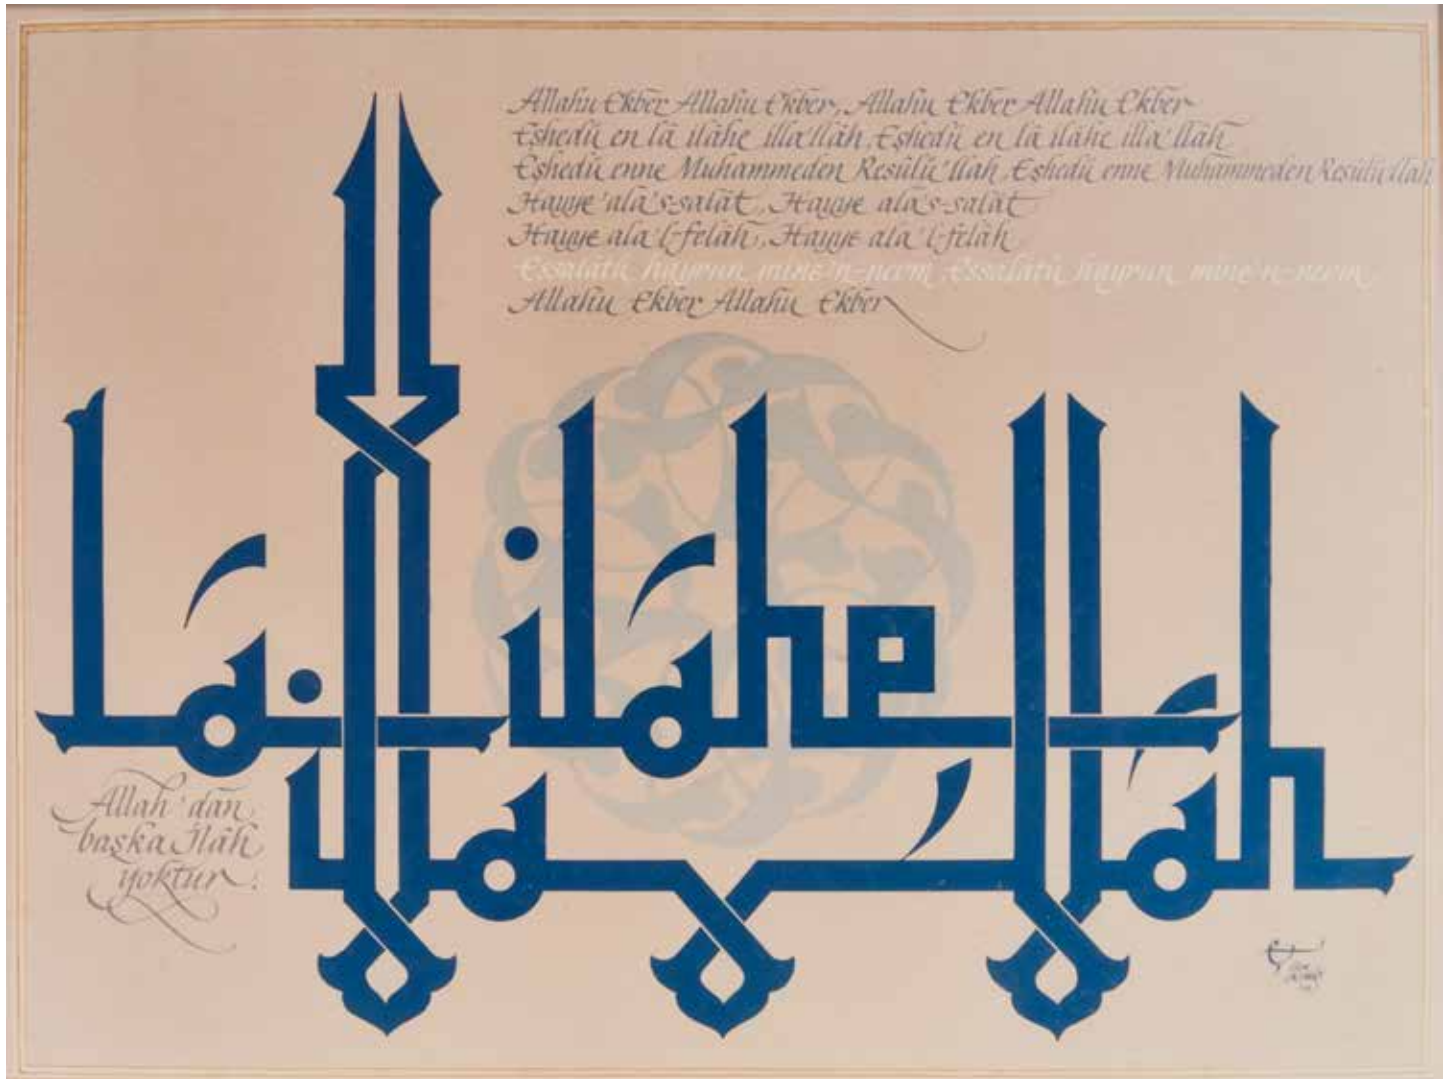 Allahu Ekber Allahu Ekber, Allahu Ekber Allahu Ekber
Eşhedü en lâ ilâhe illa'llâh, Eşhedü en lâ ilâhe illa'llâh
Eşhedü enne Muhammeden Resûlü'llah, Eşhedü enne Muhammeden Resûlü'llah
Hayye 'alâ's-salât, Hayye alâ's-salât
Hayye ala'l-felâh, Hayye ala'l-felâh
Essalâtü hayrun mine'n-nevm, Essalâtü hayrun mine'n-nevm
Allahu Ekber Allahu Ekber
lâ ilâhe
illallâh
Allah'dan
başka İlâh
yoktur.